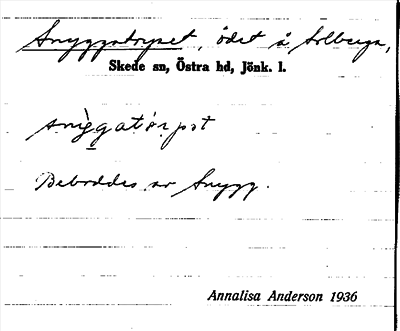 Snyggatorpet, ödet å Solberga,
Skede sn, Östra hd, Jönk. l.
snỳggatòrpət
Beboddes av Snygg.
Annalisa Anderson 1936